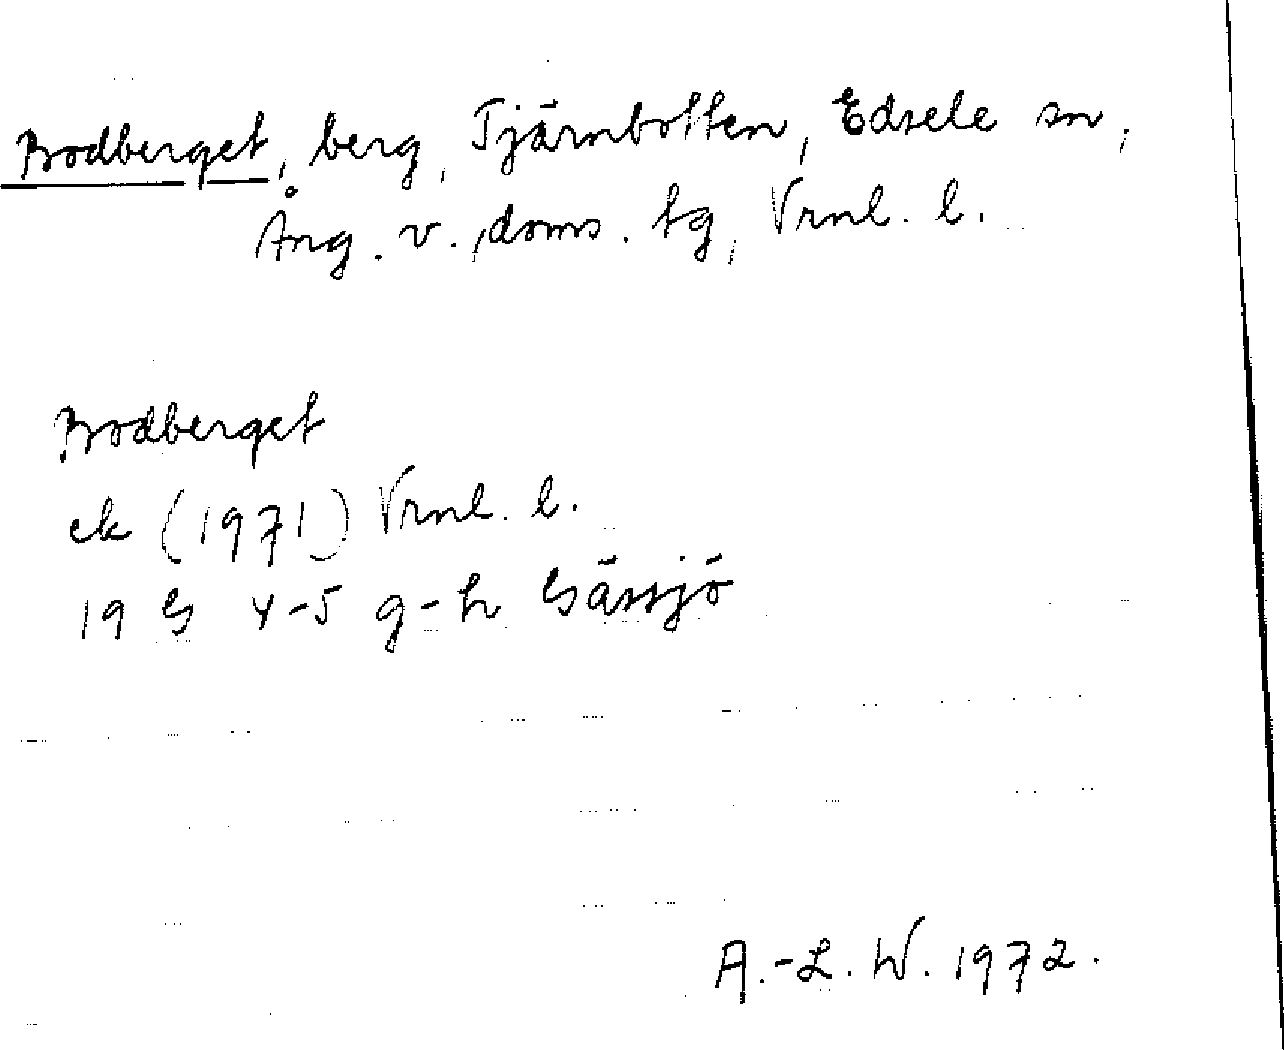 Bodberget, berg, Tjärnbotten, Edsele sn,
Ång. v., doms. tg, Vrnl. l.
Bodberget
ek (1971) Vrnl. l.
19 G 4-5 g-h Gässjö
A.-L. W. 1972.